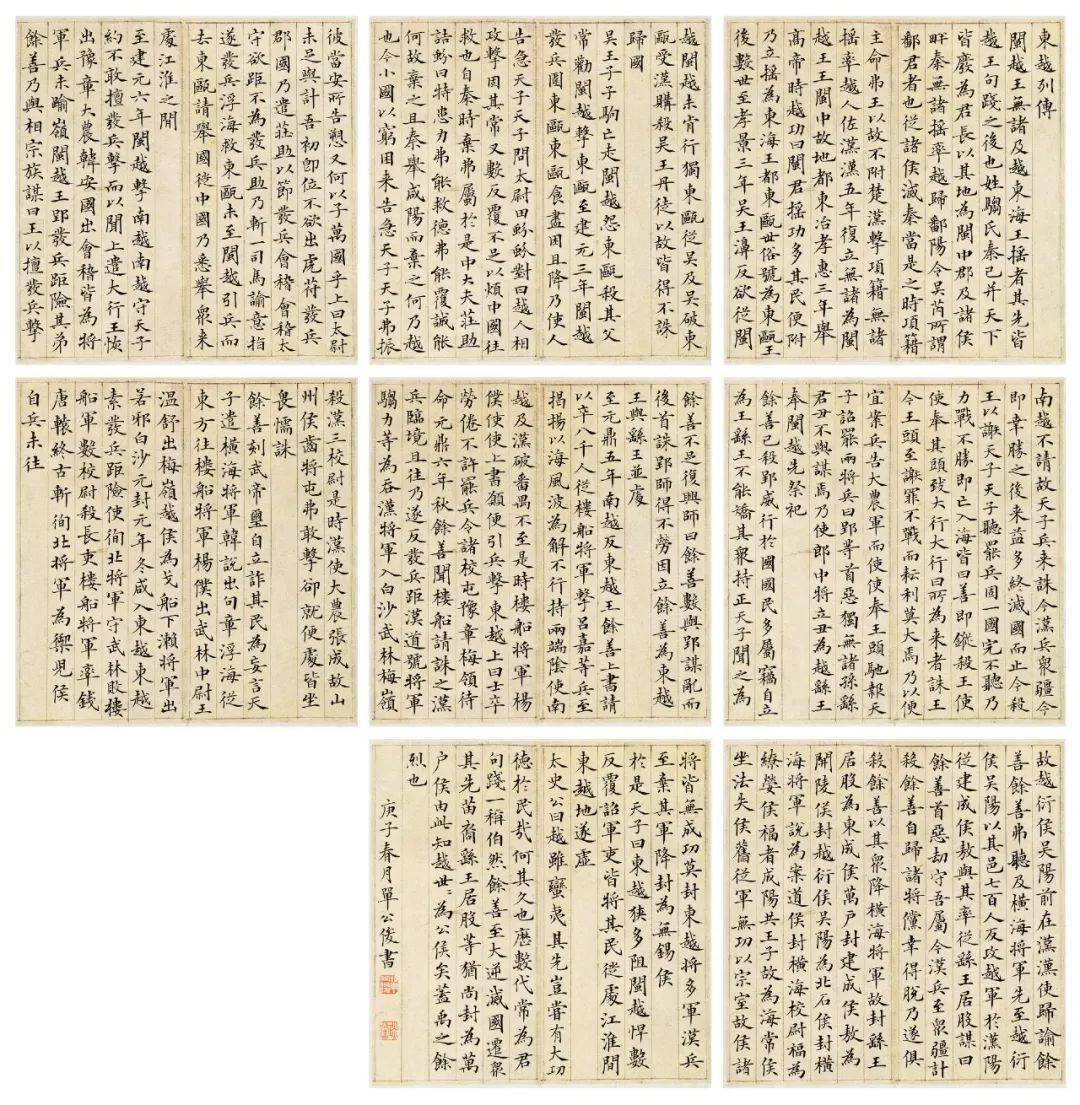 東越列傳
閩越王無諸及越東海王搖者其先皆
越王句踐之後也姓騶氏秦已并天下
皆廢為君長以其地為閩中郡及諸侯
畔秦無諸搖率越歸鄱陽令吳芮所謂
鄱君者也從諸侯滅秦當是之時項籍
主命弗王以故不附楚漢擊項籍無諸
搖率越人佐漢漢五年復立無諸為閩
越王王閩中故地都東冶孝惠三年舉
高帝時越功曰閩君搖功多其民便附
乃立搖為東海王都東甌世俗號為東甌王
後數世至孝景三年吳王濞反欲從閩
越閩越未肯行獨東甌從吳及吳破東
甌受漢購殺吳王丹徒以故皆得不誅
歸國
吳王子子駒亡走閩越怨東甌殺其父
常勸閩越擊東甌至建元三年閩越
發兵圍東甌東甌食盡困且降乃使人
告急天子天子問太尉田蚡蚡對曰越人相
攻擊固其常又數反覆不足以煩中國往
救也自秦時棄弗屬於是中大夫莊助
詰蚡曰特患力弗能救德弗能覆誠能
何故棄之且秦舉咸陽而棄之何乃越
也今小國以窮困來告急天子天子弗振
彼當安所告愬又何以子萬國乎上曰太尉
未足與計吾初即位不欲出虎符發兵
郡國乃遣莊助以節發兵會稽會稽太
守欲距不為發兵助乃斬一司馬諭意指
遂發兵浮海救東甌未至閩越引兵而
去東甌請舉國徙中國乃悉舉眾來
處江淮之間
至建元六年閩越擊南越南越守天子
約不敢擅發兵擊而以聞上遣大行王恢
出豫章大農韓安國出會稽皆為將
軍兵未踰嶺閩越王郢發兵距險其弟
餘善乃與相宗族謀曰王以擅發兵擊
南越不請故天子兵來誅今漢兵眾疆今
即幸勝之後來益多終滅國而止今殺
王以謝天子天子聽罷兵固一國完不聽乃
力戰不勝即亡入海皆曰善即鏦殺王使
使奉其頭致大行大行曰所為來者誅王
今王頭至謝罪不戰而耘利莫大焉乃以便
宜案兵告大農軍而使使奉王頭馳報天
子詔罷兩將兵曰郢等首惡獨無諸孫繇
君丑不與謀焉乃使郎中將立丑為越繇王
奉閩越先祭祀
餘善已殺郢威行於國國民多屬竊自立
為王繇王不能矯其眾持正天子聞之為
餘善不足復興師曰餘善數與郢謀亂而
後首誅郢師得不勞因立餘善為東越
王與繇王並處
至元鼎五年南越反東越王餘善上書請
以卒八千人從樓船將軍擊呂嘉等兵至
揭揚以海風波為解不行持兩端陰使南
越及漢破番禺不至是時樓船將軍楊
僕使使上書願便引兵擊東越上曰士卒
勞倦不許罷兵令諸校屯豫章梅領待
命元鼎六年秋餘善聞樓船請誅之漢
兵臨境且往乃遂反發兵距漢道號將軍
騶力等為吞漢將軍入白沙武林梅嶺
殺漢三校尉是時漢使大農張成故山
州侯齒將屯弗敢擊卻就便處皆坐
畏懦誅
餘善刻武帝璽自立詐其民為妄言天
子遣橫海將軍韓說出句章浮海從
東方往樓船將軍楊僕出武林中尉王
溫舒出梅嶺越侯為戈船下瀨將軍出
若邪白沙元封元年冬咸入東越東越
素發兵距險使徇北將軍守武林敗樓
船軍數校尉殺長吏樓船將軍率錢
唐轅終古斬徇北將軍為禦兒侯
自兵未往
故越衍侯吳陽前在漢漢使歸諭餘
善餘善弗聽及橫海將軍先至越衍
侯吳陽以其邑七百人反攻越軍於漢陽
從建成侯敖與其率從繇王居股謀曰
餘善首惡劫守吾屬今漢兵至眾疆計
殺餘善自歸諸將儻幸得脫乃遂俱
殺餘善以其眾降橫海將軍故封繇王
居股為東成侯萬戶封建成侯敖為
開陵侯封越衍侯吳陽為北石侯封橫
海將軍說為案道侯封橫海校尉福為
繚嫈侯福者成陽共王子故為海常侯
坐法失侯舊從軍無功以宗室故侯諸
將皆無成功莫封東越將多軍漢兵
至棄其軍降封為無錫侯
於是天子曰東越狹多阻閩越悍數
反覆詔軍吏皆將其民徙處江淮間
東越地遂虛
太史公曰越雖蠻夷其先豈嘗有大功
德於民哉何其久也歷數代常為君
句踐一稱伯然餘善至大逆滅國遷眾
其先苗裔繇王居股等猶尚封為萬
戶侯由此知越世〻為公侯矣蓋禹之餘
烈也
庚子春月單公俊書